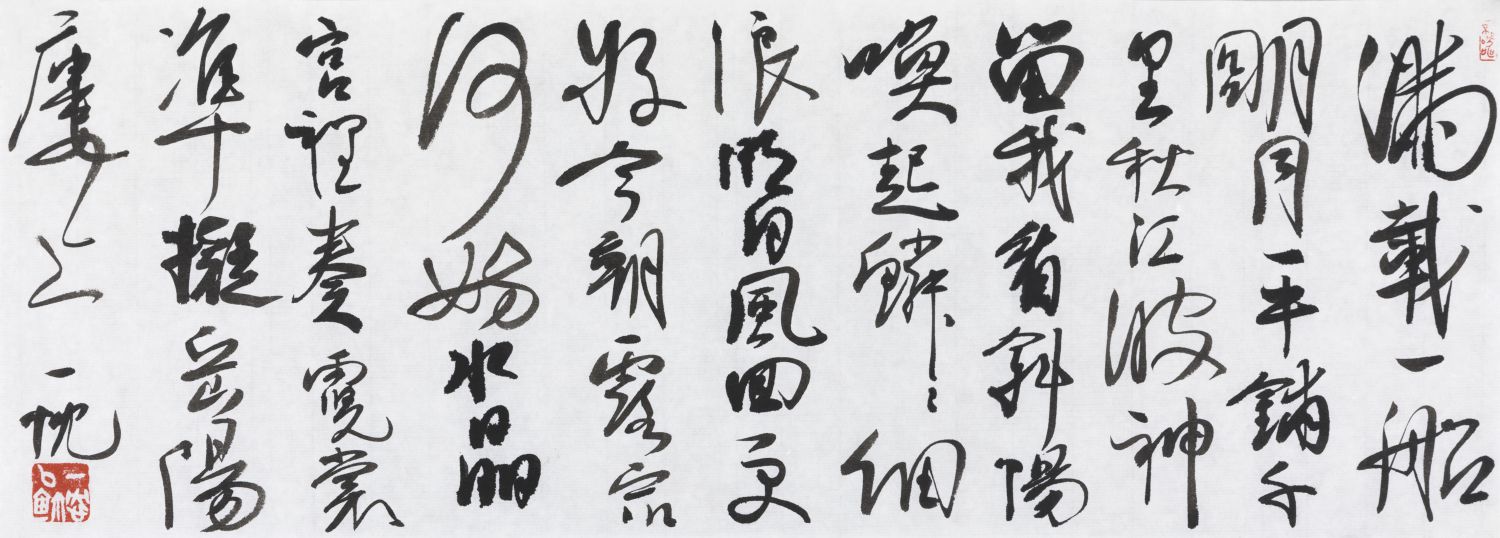 滿載一船
朙月平鋪千
里秋江波神
留我看斜陽
喚起鱗〻細
浪明日風回更
好今朝露宿
何妨水晶
宮裡奏霓裳
準擬岳陽
廔上 一忱